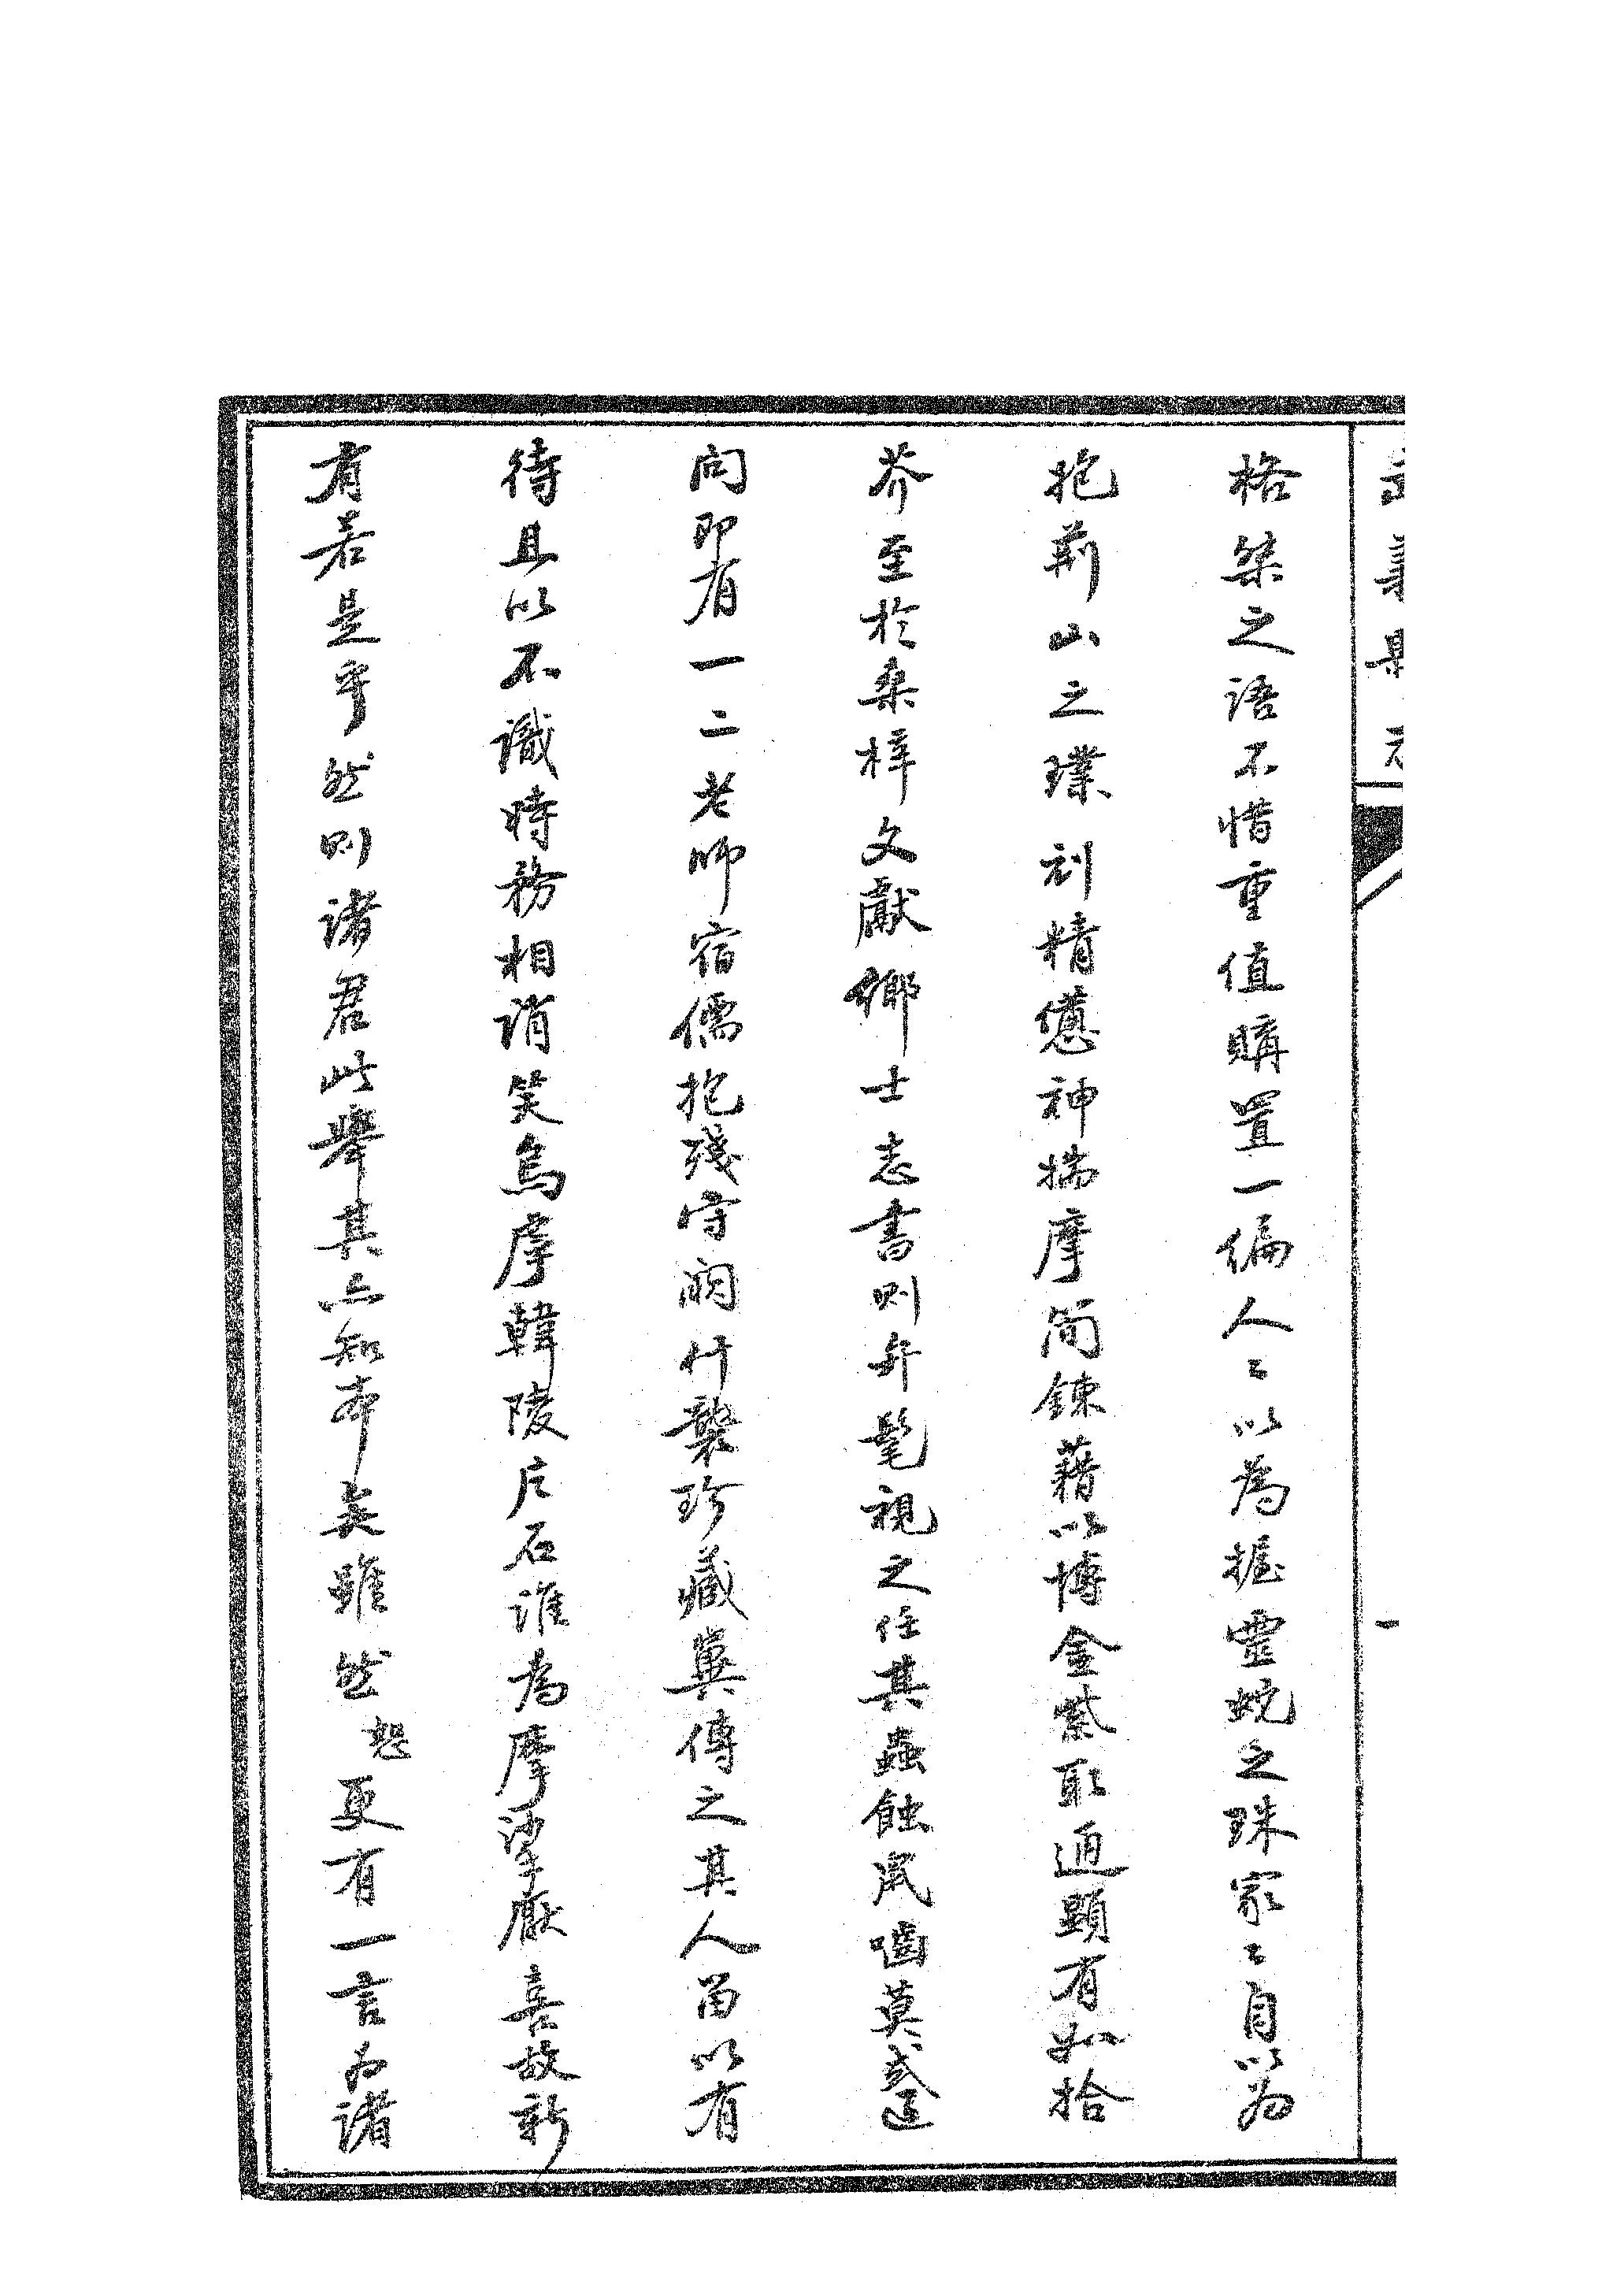 武義縣志 一
格桀之語不惜重值購置一偏人〻以為握靈蛇之珠家〻自以為
抱荊山之璞刳精憊神揣摩簡鍊藉以博金紫取通顯有如拾
芥至於桑梓文獻鄉士志書則弁髦視之任其蟲蝕鼠嚙莫或過
問即有一二老師宿儒抱殘守闕什襲珍藏冀傳之其人留以有
待且以不識時務相誚笑烏虖韓陵片石誰為摩挲厭喜故新
有若是乎然則諸君此舉其亦知本矣雖然恕更有一言為諸